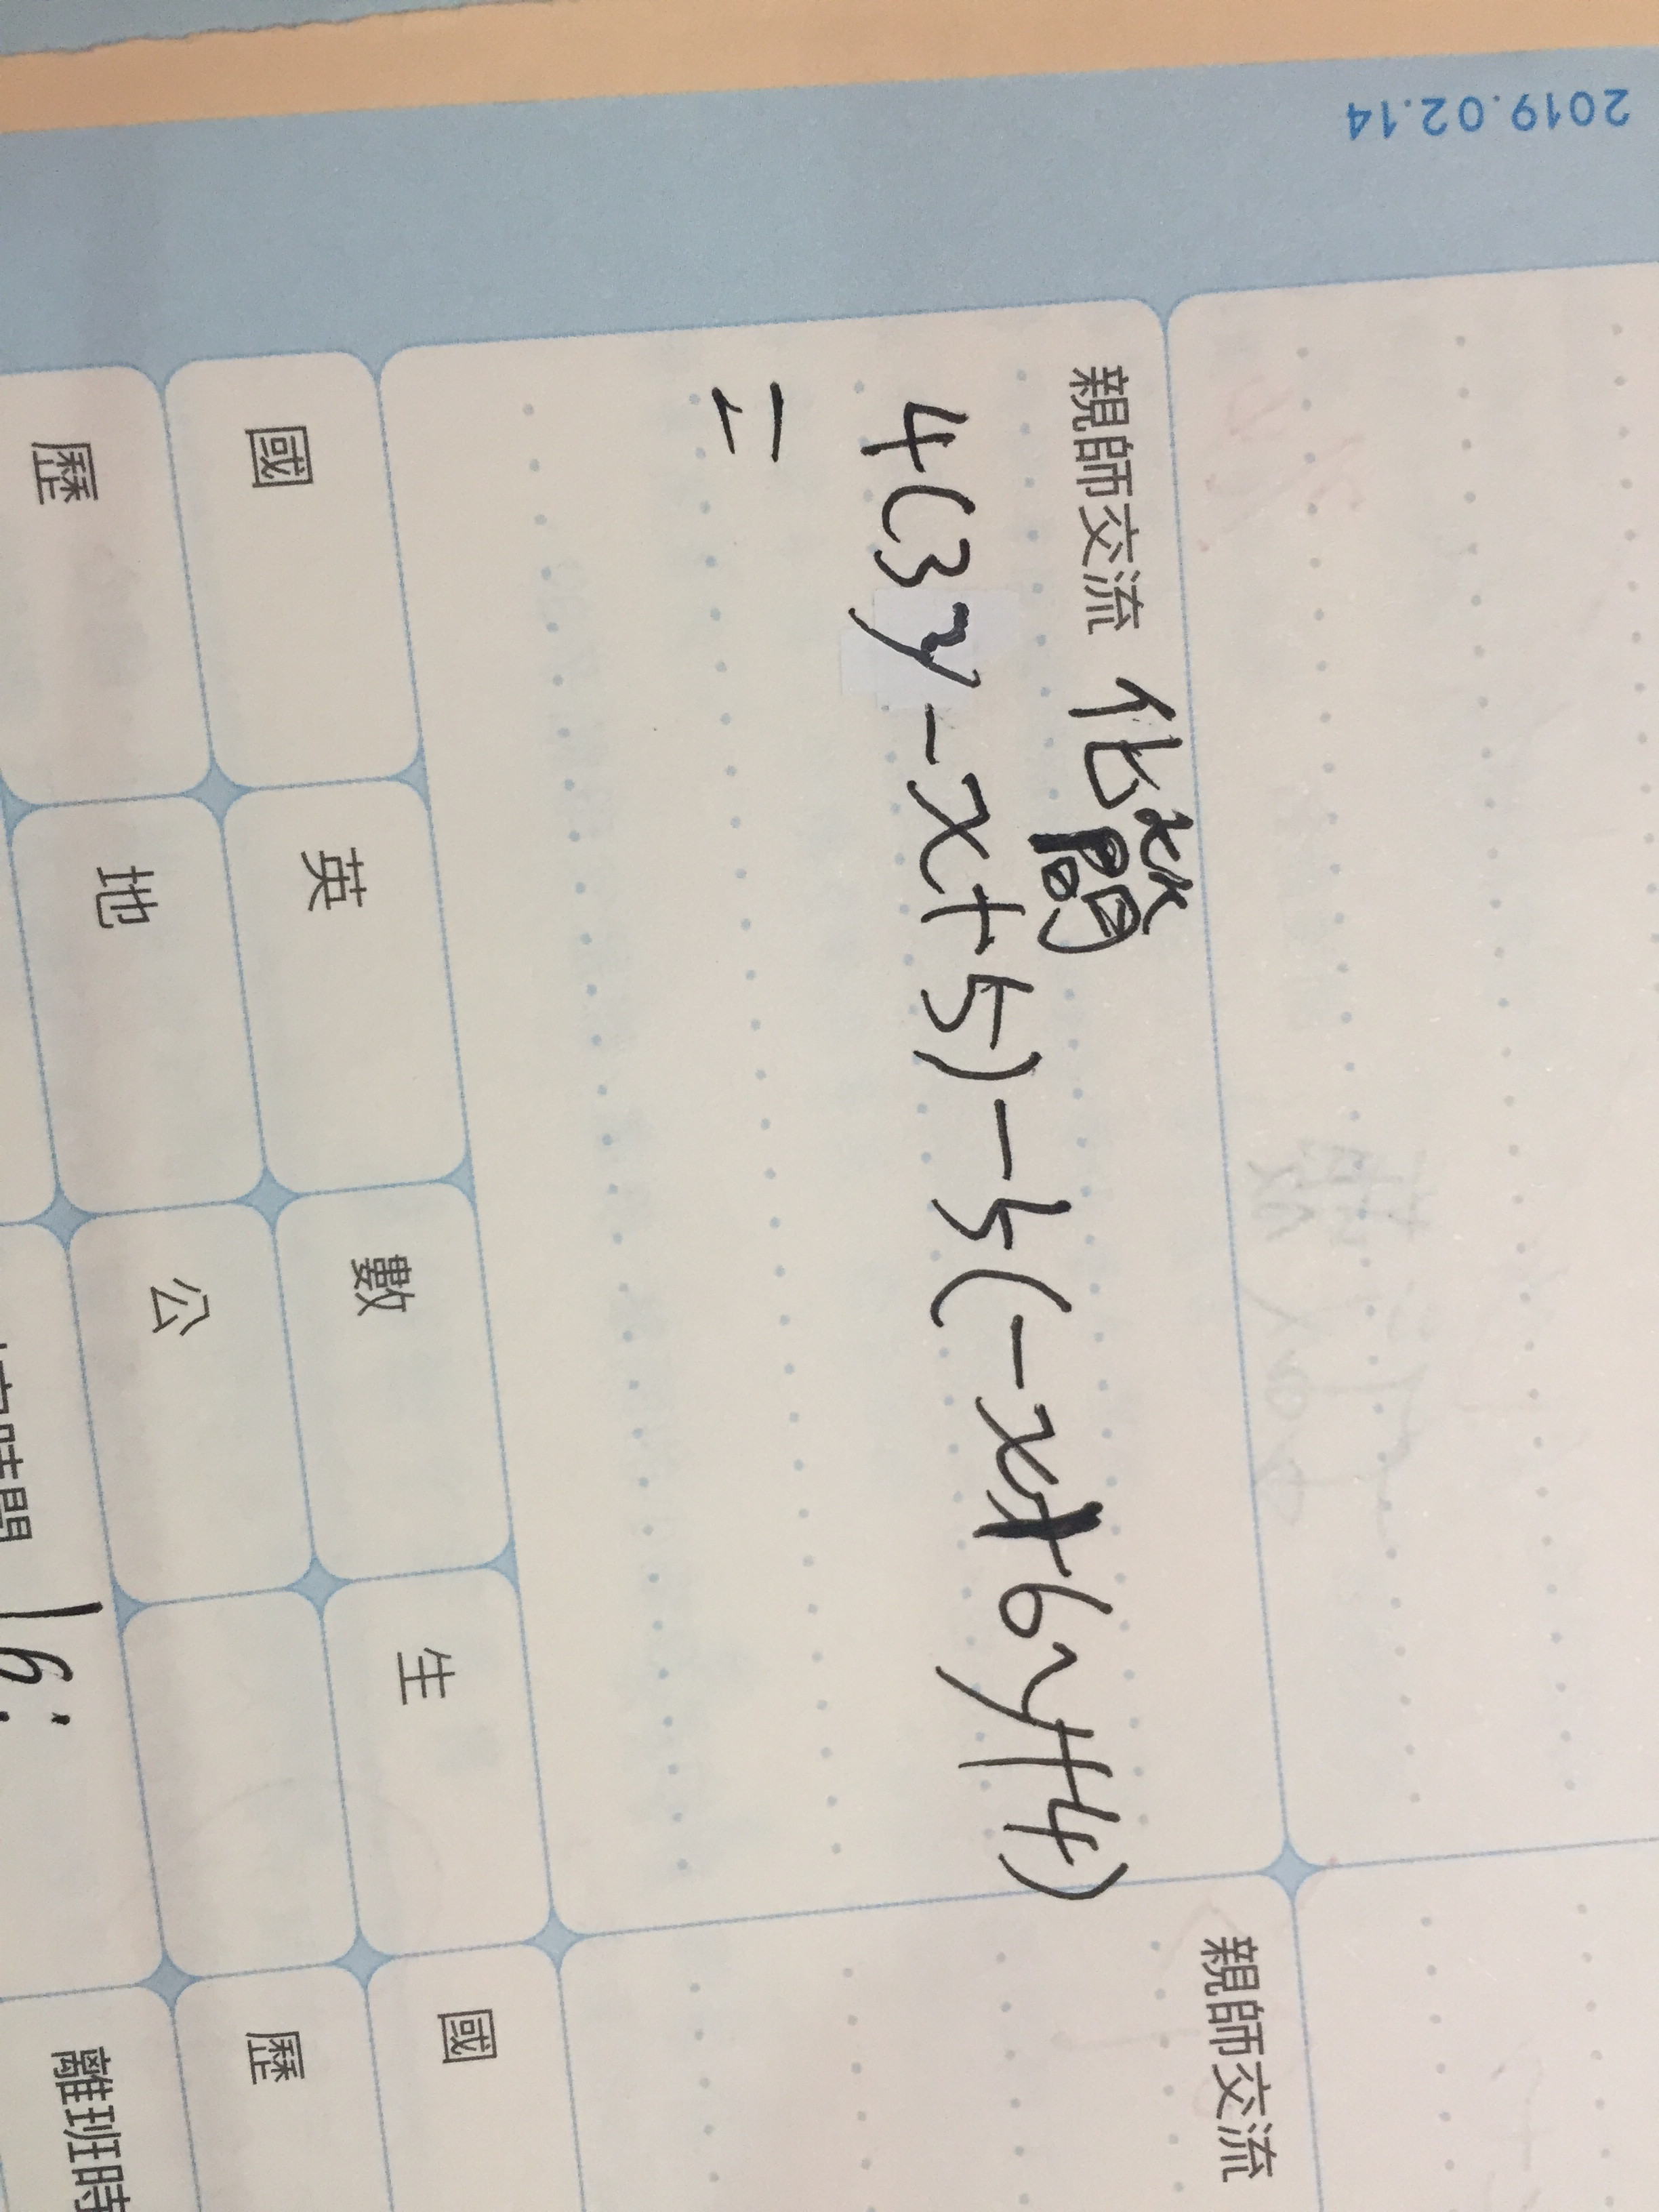 2019.02.14
親師交流 化簡
4(3y-x+5)-5(-x+6y+4)
=
國 英 數 生 國
歷 地 公 歷
16:
離班時
親師交流